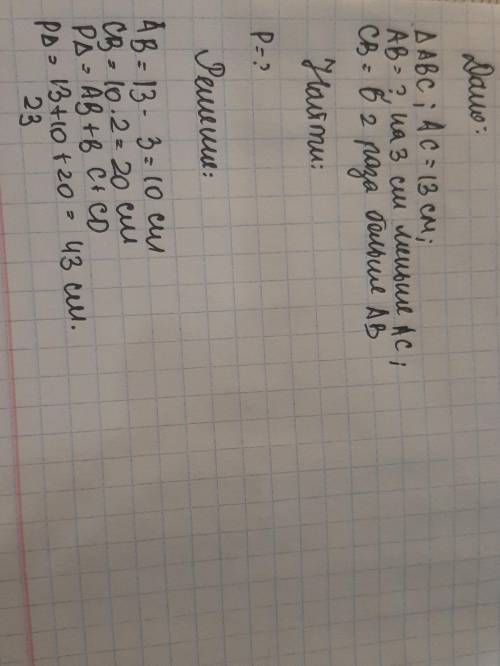 Дано:
Δ ABC; AC = 13 см;
AB = ? на 3 см меньше AC;
CB = в 2 раза больше AB
Найти:
P = ?
Решение:
AB = 13 - 3 = 10 см
CB = 10 · 2 = 20 см
PΔ = AB + BC + CD
PΔ = 13 + 10 + 20 = 43 см.
23